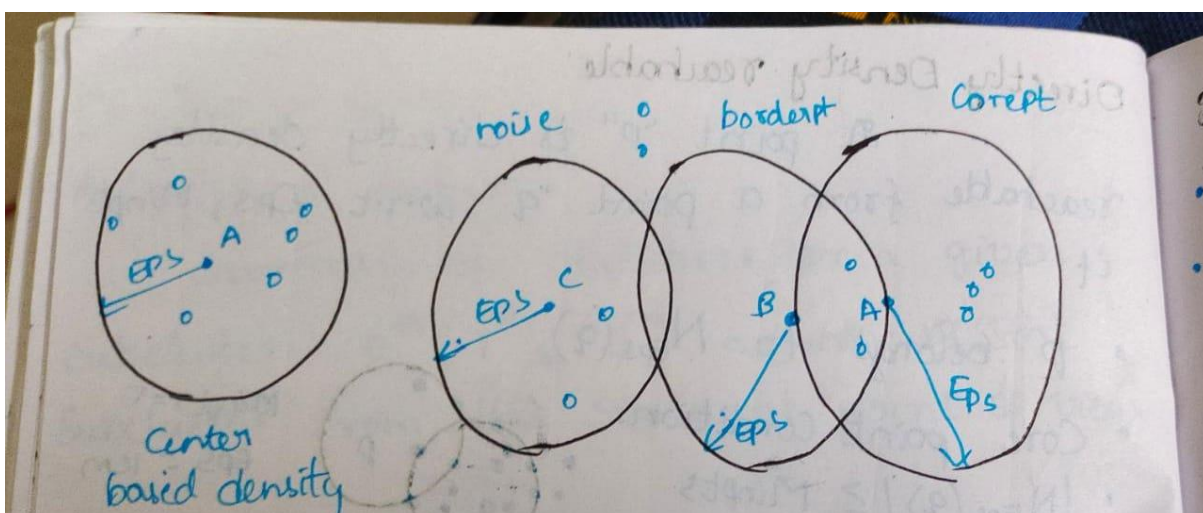 noise
borderpt
Corept
A
EPS
C
EPS
B
EPS
A
Eps
Center
based density